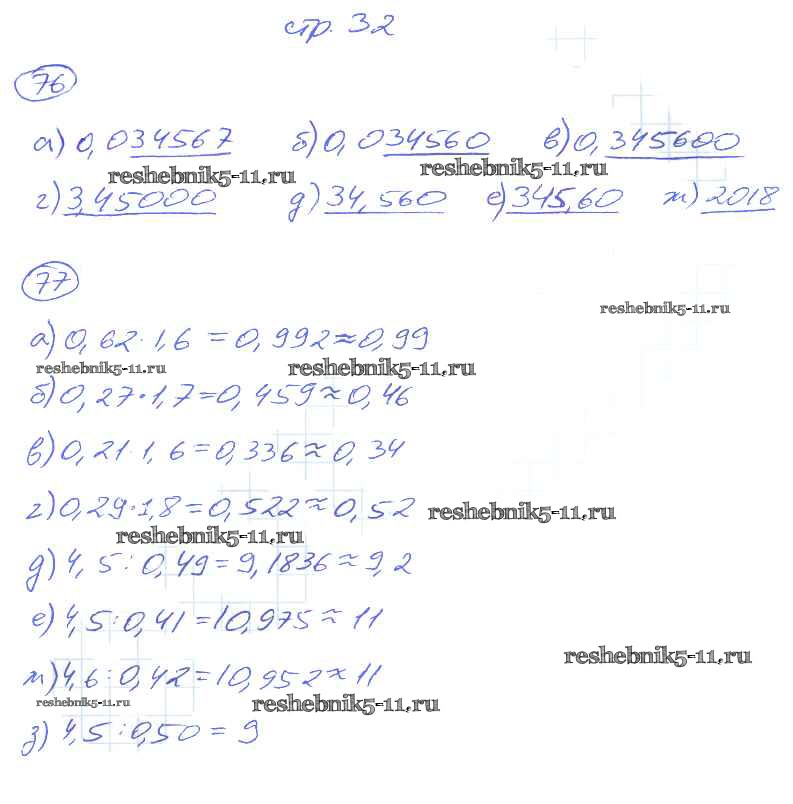 стр. 32
76
а) 0,034567 б) 0,034560 в) 0,345600
reshebnik5-11.ru reshebnik5-11.ru
г) 3,45000 д) 34,560 е) 345,60 ж) 2018
77
reshebnik5-11.ru
а) 0,62·1,6=0,992≈0,99
reshebnik5-11.ru reshebnik5-11.ru
б) 0,27·1,7=0,459≈0,46
в) 0,21·1,6=0,336≈0,34
г) 0,29·1,8=0,522≈0,52 reshebnik5-11.ru
reshebnik5-11.ru
д) 4,5:0,49=9,1836≈9,2
е) 4,5:0,41=10,975≈11
reshebnik5-11.ru
ж) 4,6:0,42=10,952≈11
reshebnik5-11.ru reshebnik5-11.ru
з) 4,5:0,50=9